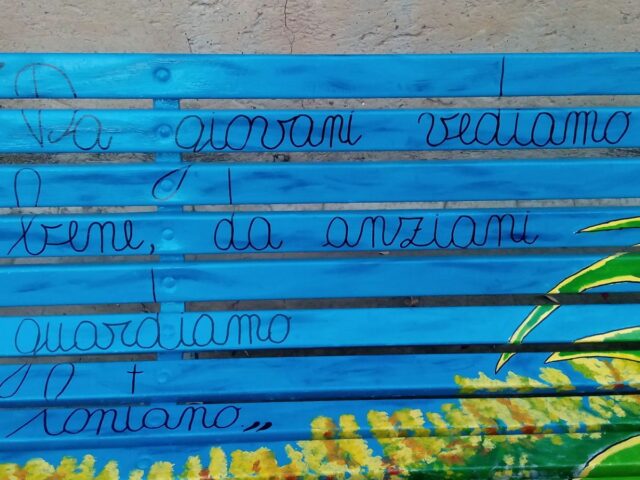 Da giovani vediamo
bene, da anziani
guardiamo
lontano„